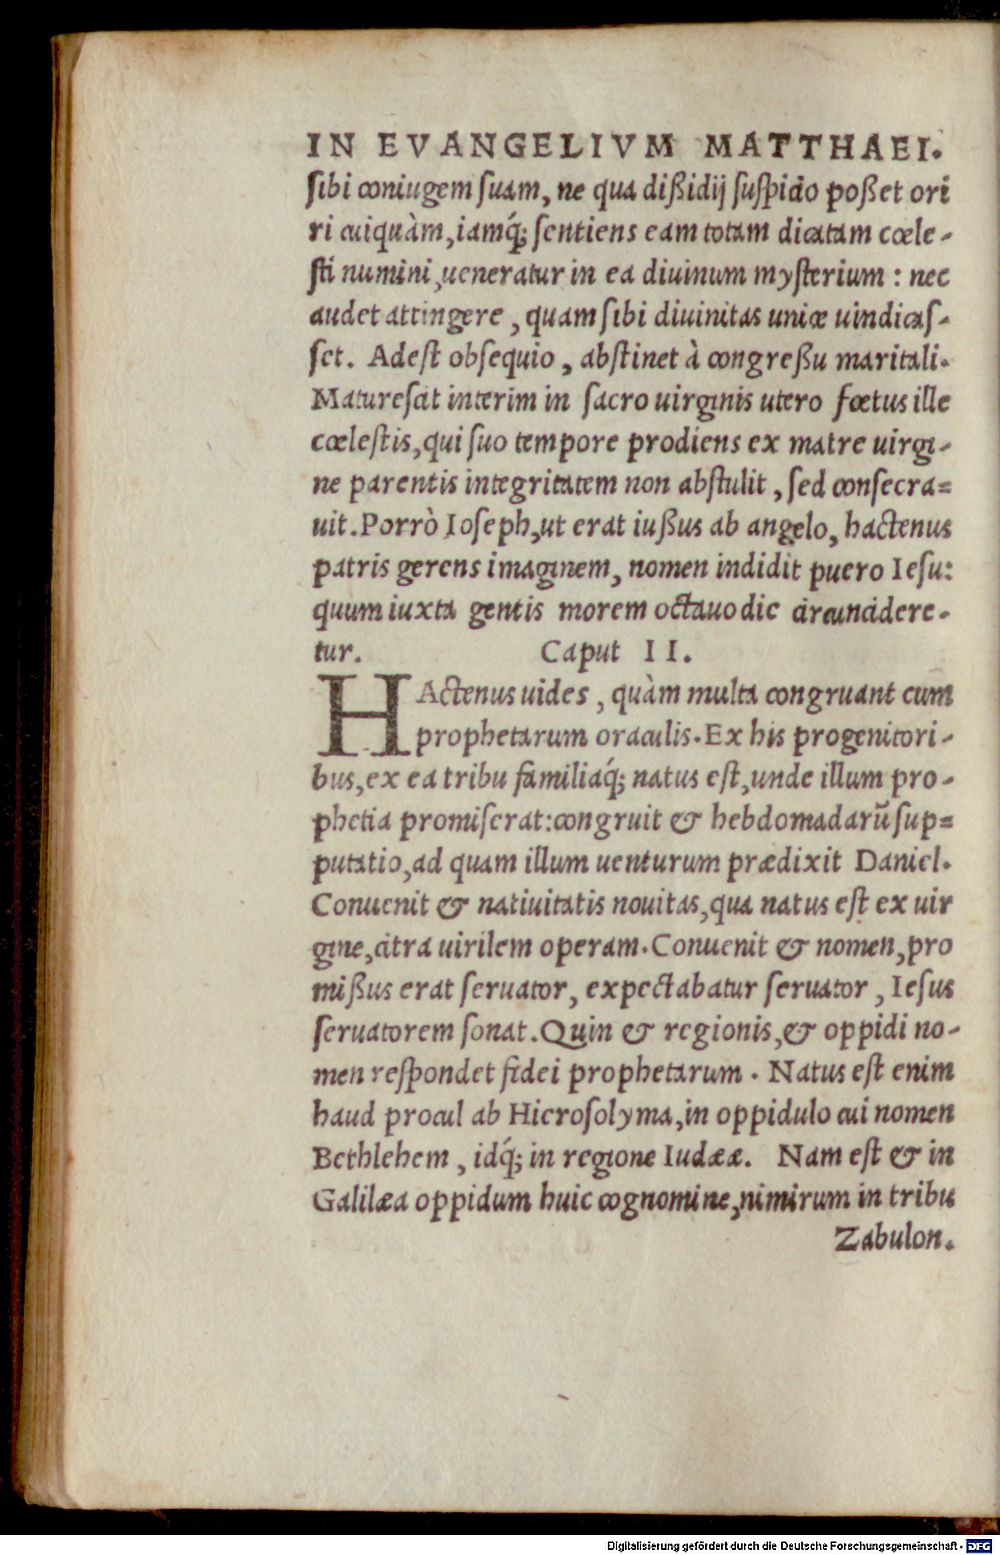 IN EVANGELIVM MATTHAEI.
sibi coniugem suam, ne qua dißidij suspicio poßet ori
ri cuiquàm, iamq́; sentiens eam totam dicatam cœle-
sti numini, ueneratur in ea diuinum mysterium : nec
audet attingere, quam sibi diuinitas unice uindicas-
set. Adest obsequio, abstinet à congreßu maritali.
Maturescit interim in sacro uirginis utero fœtus ille
cœlestis, qui suo tempore prodiens ex matre uirgi-
ne parentis integritatem non abstulit, sed consecra=
uit. Porrò Ioseph, ut erat iußus ab angelo, hactenus
patris gerens imaginem, nomen indidit puero Iesu:
quum iuxta gentis morem octauo die circuncidere-
tur. Caput II.
HActenus uides, quàm multa congruant cum
prophetarum oraculis. Ex his progenitori-
bus, ex ea tribu familiaq́; natus est, unde illum pro-
phetia promiserat: congruit & hebdomadarũ sup=
putatio, ad quam illum uenturum prædixit Daniel.
Conuenit & natiuitatis nouitas, qua natus est ex uir
gine, citra uirilem operam. Conuenit & nomen, pro
mißus erat seruator, expectabatur seruator, Iesus
seruatorem sonat. Quin & regionis, & oppidi no-
men respondet fidei prophetarum. Natus est enim
haud procul ab Hierosolyma, in oppidulo cui nomen
Bethlehem, idq́; in regione Iudææ. Nam est & in
Galilæa oppidum huic cognomine, nimirum in tribu
Zabulon.
Digitalisierung gefördert durch die Deutsche Forschungsgemeinschaft - DFG